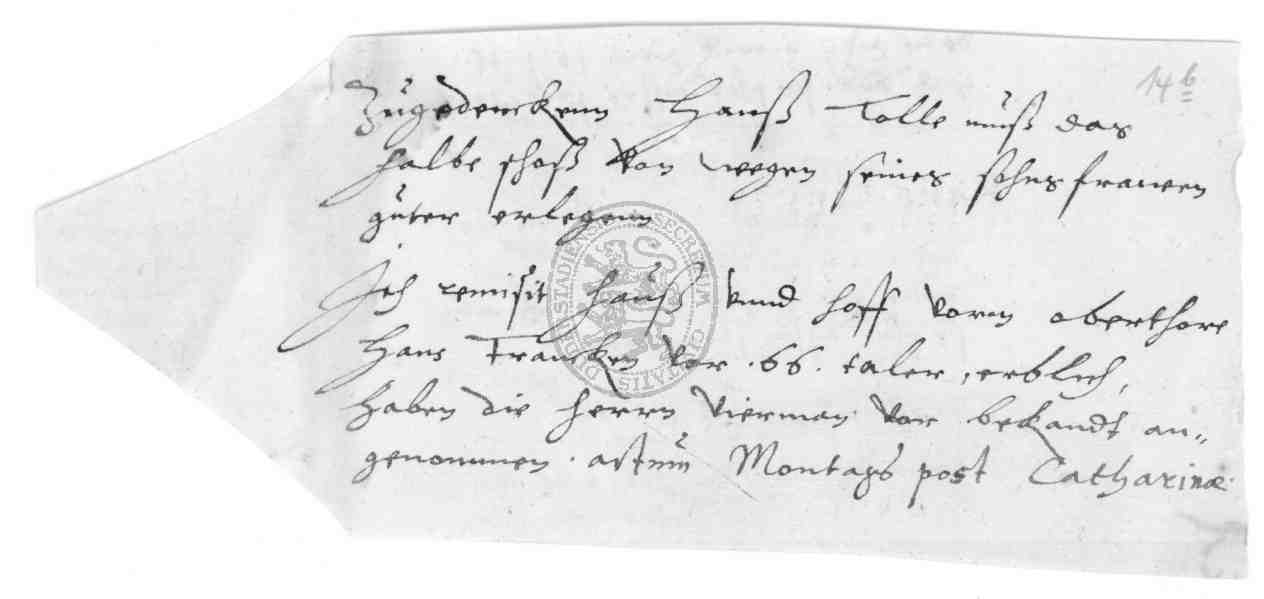 14 b
Zugedenckenn Hanß Tolle muß das
halbe schoß von wegen seines sohns frawen
guter erlegenn
Jch remisit Hauß vnnd hoff vorm oberthore
Hans Francken vor .66. taler, erblich,
haben die herrn vierman vor bekandt an-
genommen. actum Montags post Catharinæ.
SECRETUM CIVITATIS